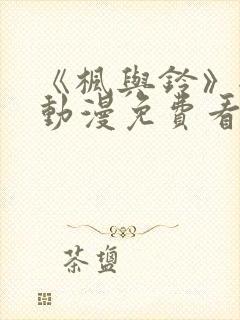 《楓與鈴》
動漫免費看
茶鹽